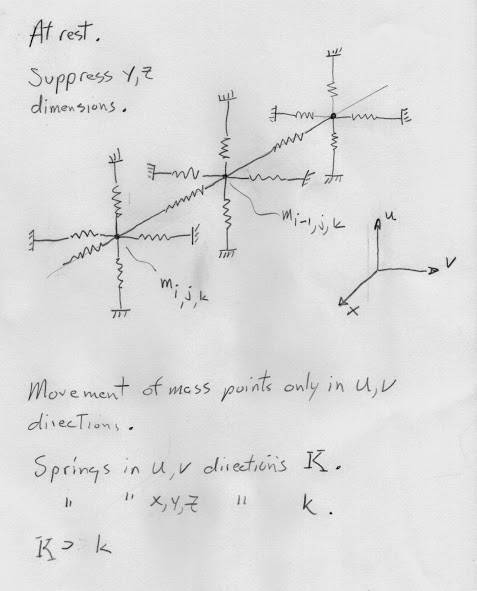 At rest.
Suppress Y,Z
dimensions.
m i-1,j,k
u
v
x
m i,j,k
Movement of mass points only in u,v
directions.
Springs in u,v directions K.
" " x,y,z " k.
K > k